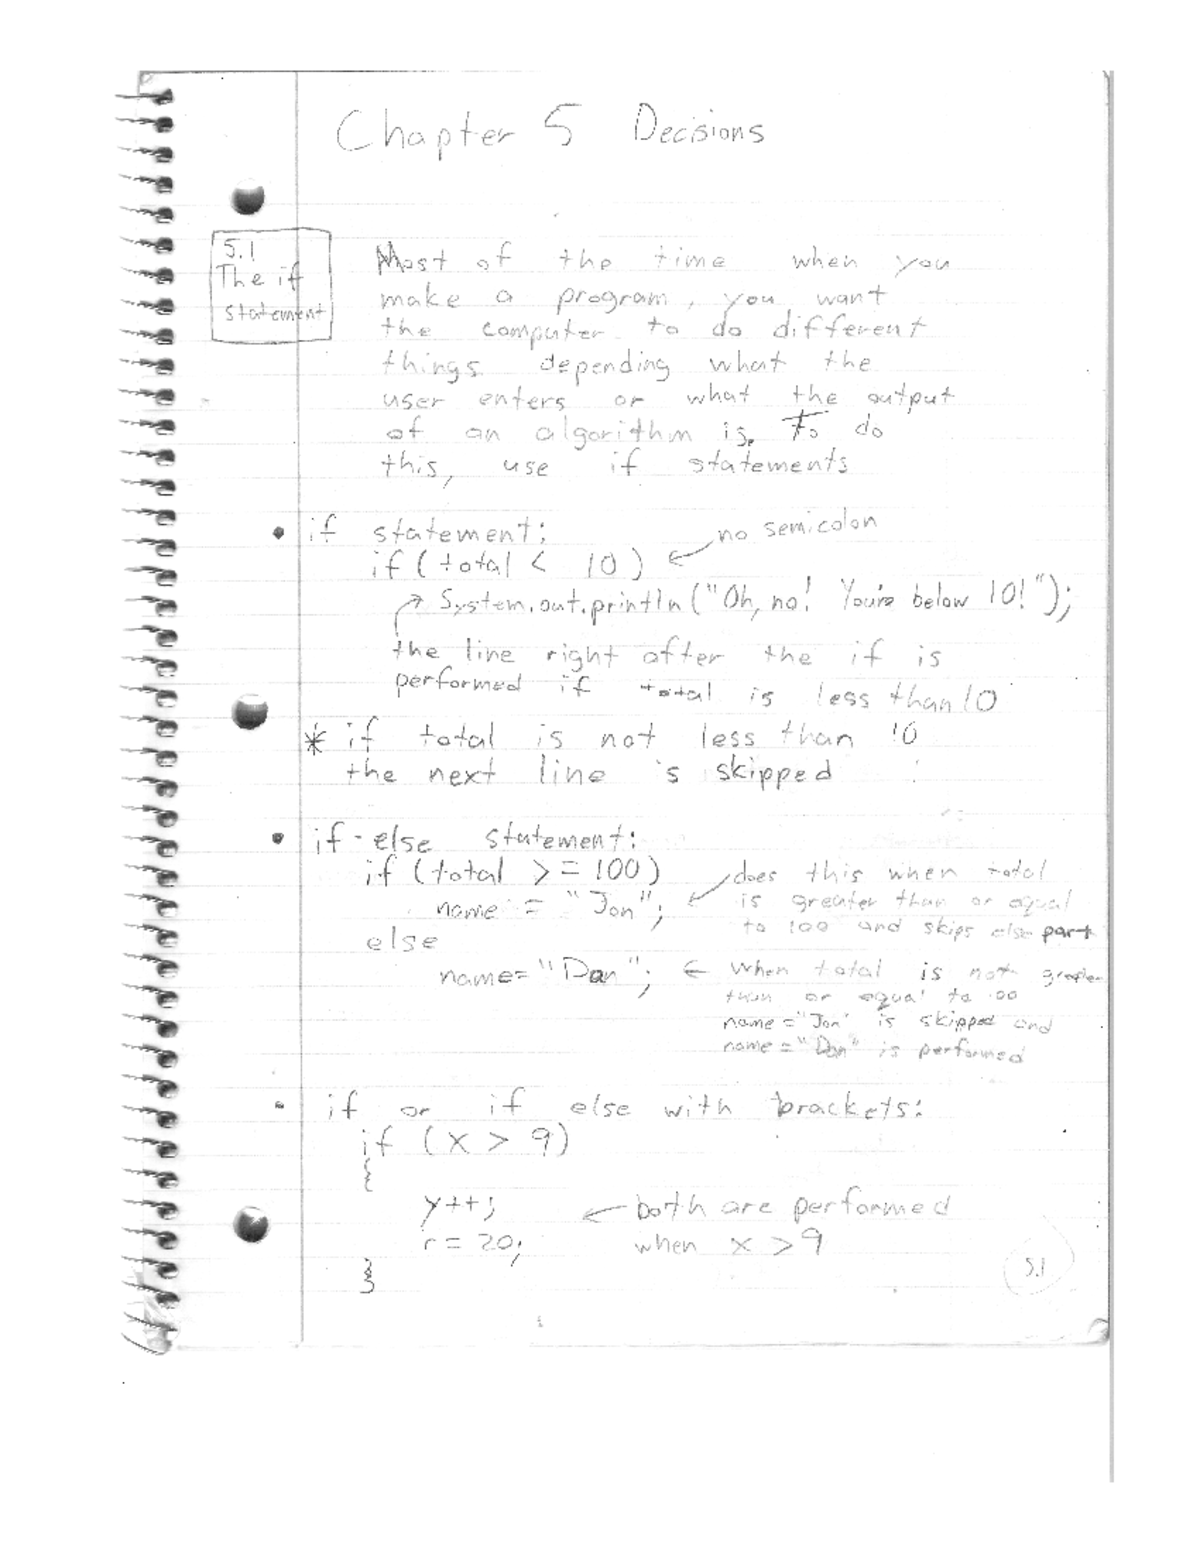 Chapter 5 Decisions
5.1
The if
statement
Most of the time when you
make a program, you want
the computer to do different
things depending what the
user enters or what the output
of an algorithm is. To do
this, use if statements
• if statement:
no semicolon
if ( total < 10 )
System.out.println("Oh, no! You're below 10!");
the line right after the if is
performed if total is less than 10
* if total is not less than 10
the next line is skipped
• if-else statement:
if (total >= 100)
name = "Jon";
does this when total
is greater than or equal
to 100 and skips else part
else
name="Dan";
when total is not greater
than or equal to 100
name="Jon" is skipped and
name="Dan" is performed
• if or if else with brackets:
if (x > 9)
{
y++;
r = 20;
both are performed
when x > 9
}
5.1